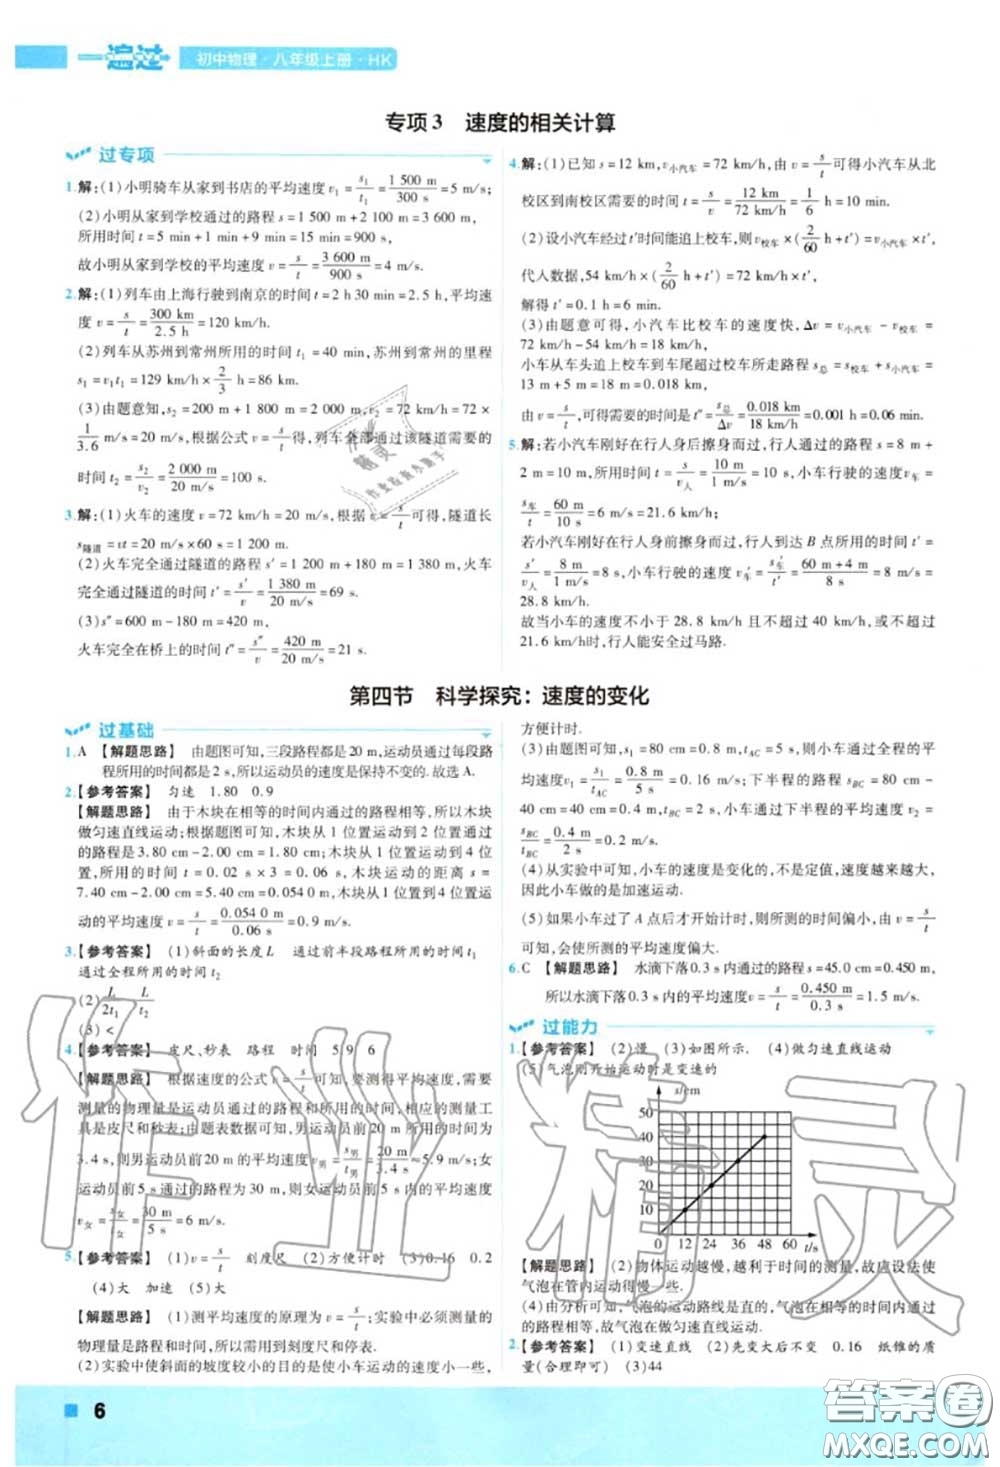 一遍过 初中物理·八年级上册·HK
专项3 速度的相关计算
过专项
1.解:(1)小明骑车从家到书店的平均速度v₁=s₁/t₁=1 500 m/300 s=5 m/s;
(2)小明从家到学校通过的路程s=1 500 m+2 100 m=3 600 m,
所用时间t=5 min+1 min+9 min=15 min=900 s,
故小明从家到学校的平均速度v=s/t=3 600 m/900 s=4 m/s.
2.解:(1)列车由上海行驶到南京的时间t=2 h 30 min=2.5 h,平均速
度v=s/t=300 km/2.5 h=120 km/h.
(2)列车从苏州到常州所用的时间t₁=40 min,苏州到常州的里程
s₁=v₁t₁=129 km/h×2/3 h=86 km.
(3)由题意知,s₂=200 m+1 800 m=2 000 m,v₂=72 km/h=72×
1/3.6 m/s=20 m/s,根据公式v=s/t得,列车全部通过该隧道需要的
时间t₂=s₂/v₂=2 000 m/20 m/s=100 s.
3.解:(1)火车的速度v=72 km/h=20 m/s,根据v=s/t可得,隧道长
s隧道=vt=20 m/s×60 s=1 200 m.
(2)火车完全通过隧道的路程s′=1 200 m+180 m=1 380 m,火车
完全通过隧道的时间t′=s′/v=1 380 m/20 m/s=69 s.
(3)s″=600 m-180 m=420 m,
火车完全在桥上的时间t″=s″/v=420 m/20 m/s=21 s.
4.解:(1)已知s=12 km,v小汽车=72 km/h,由v=s/t可得小汽车从北
校区到南校区需要的时间t=s/v=12 km/72 km/h=1/6 h=10 min.
(2)设小汽车经过t′时间能追上校车,则v校车×(2/60 h+t′)=v小汽车×t′,
代人数据,54 km/h×(2/60 h+t′)=72 km/h×t′,
解得t′=0.1 h=6 min.
(3)由题意可得,小汽车比校车的速度快,Δv=v小汽车-v校车=
72 km/h-54 km/h=18 km/h,
小车从车头追上校车到车尾超过校车所走路程s总=s校车+s小汽车=
13 m+5 m=18 m=0.018 km,
由v=s/t,可得需要的时间t″=s总/Δv=0.018 km/18 km/h=0.001 h=0.06 min.
5.解:若小汽车刚好在行人身后擦身而过,行人通过的路程s=8 m+
2 m=10 m,所用时间t=s/v人=10 m/1 m/s=10 s,小车行驶的速度v车=
s车/t=60 m/10 s=6 m/s=21.6 km/h;
若小汽车刚好在行人身前擦身而过,行人到达B点所用的时间t′=
s′/v人=8 m/1 m/s=8 s,小车行驶的速度v′车=s′车/t′=60 m+4 m/8 s=8 m/s=
28.8 km/h.
故当小车的速度不小于28.8 km/h且不超过40 km/h,或不大于
21.6 km/h时,行人能安全过马路.
第四节 科学探究:速度的变化
过基础
1.A 【解题思路】 由题图可知,三段路程都是20 m,运动员通过每段路
程所用的时间都是2 s,所以运动员的速度是保持不变的.故选A.
2.【参考答案】 匀速 1.80 0.9
【解题思路】 由于木块在相等的时间内通过的路程相等,所以木块
做匀速直线运动;根据题图可知,木块从1位置运动到2位置通过
的路程是3.80 cm-2.00 cm=1.80 cm;木块从1位置运动到4位
置,所用的时间t=0.02 s×3=0.06 s,木块运动的距离s=
7.40 cm-2.00 cm=5.40 cm=0.054 0 m,木块从1位置到4位置运
动的平均速度v=s/t=0.054 0 m/0.06 s=0.9 m/s.
3.【参考答案】 (1)斜面的长度L 通过前半段路程所用的时间t₁
通过全过程所用的时间t₂
(2)L/2t₁ L/t₂
(3)<
4.【参考答案】 皮尺、秒表 路程 时间 5.9 6
【解题思路】 根据速度的公式v=s/t可知,要测得平均速度,需要
测量的物理量是运动员通过的路程和所用的时间,相应的测量工
具是皮尺和秒表;由题表数据可知,男运动员前20 m所用的时间为
3.4 s,则男运动员前20 m的平均速度v男=s男/t男=20 m/3.4 s≈5.9 m/s;女
运动员前5 s通过的路程为30 m,则女运动员前5 s内的平均速度
v女=s女/t女=30 m/5 s=6 m/s.
5.【参考答案】 (1)v=s/t 刻度尺 (2)方便计时 (3)0.16 0.2
(4)大 加速 (5)大
【解题思路】 (1)测平均速度的原理为v=s/t;实验中必须测量的
物理量是路程和时间,所以需要用到刻度尺和停表.
(2)实验中使斜面的坡度较小的目的是使小车运动的速度小一些,
方便计时.
(3)由题图可知,s₁=80 cm=0.8 m,tAC=5 s,则小车通过全程的平
均速度v₁=s₁/t=0.8 m/5 s=0.16 m/s;下半程的路程sBC=80 cm
-40 cm=40 cm=0.4 m,tBC=2 s,小车通过下半程的平均速度v₂=
sBC/tBC=0.4 m/2 s=0.2 m/s.
(4)从实验中可知,小车的速度是变化的,不是定值,速度越来越大,
因此小车做的是加速运动.
(5)如果小车过了A点后才开始计时,则所测的时间偏小,由v=s/t
可知,会使所测的平均速度偏大.
6.C 【解题思路】 水滴下落0.3 s内通过的路程s=45.0 cm=0.450 m,
所以水滴下落0.3 s内的平均速度v=s/t=0.450 m/0.3 s=1.5 m/s.
过能力
1.【参考答案】 (2)慢 (3)如图所示. (4)做匀速直线运动
(5)气泡刚开始运动时是变速的
s/cm
50
40
30
20
10
0 12 24 36 48 60 t/s
【解题思路】 (2)物体运动越慢,越利于时间的测量,故应设法使
气泡在管内运动得慢一些.
(4)由分析可知,气泡的运动路线是直的,气泡在相等的时间内通过
的路程相等,故气泡在做匀速直线运动.
2.【参考答案】 (1)变速直线 (2)先变大后不变 0.16 纸锥的质
量(合理即可) (3)44
6
作业精灵
答案圈
MXQE.COM